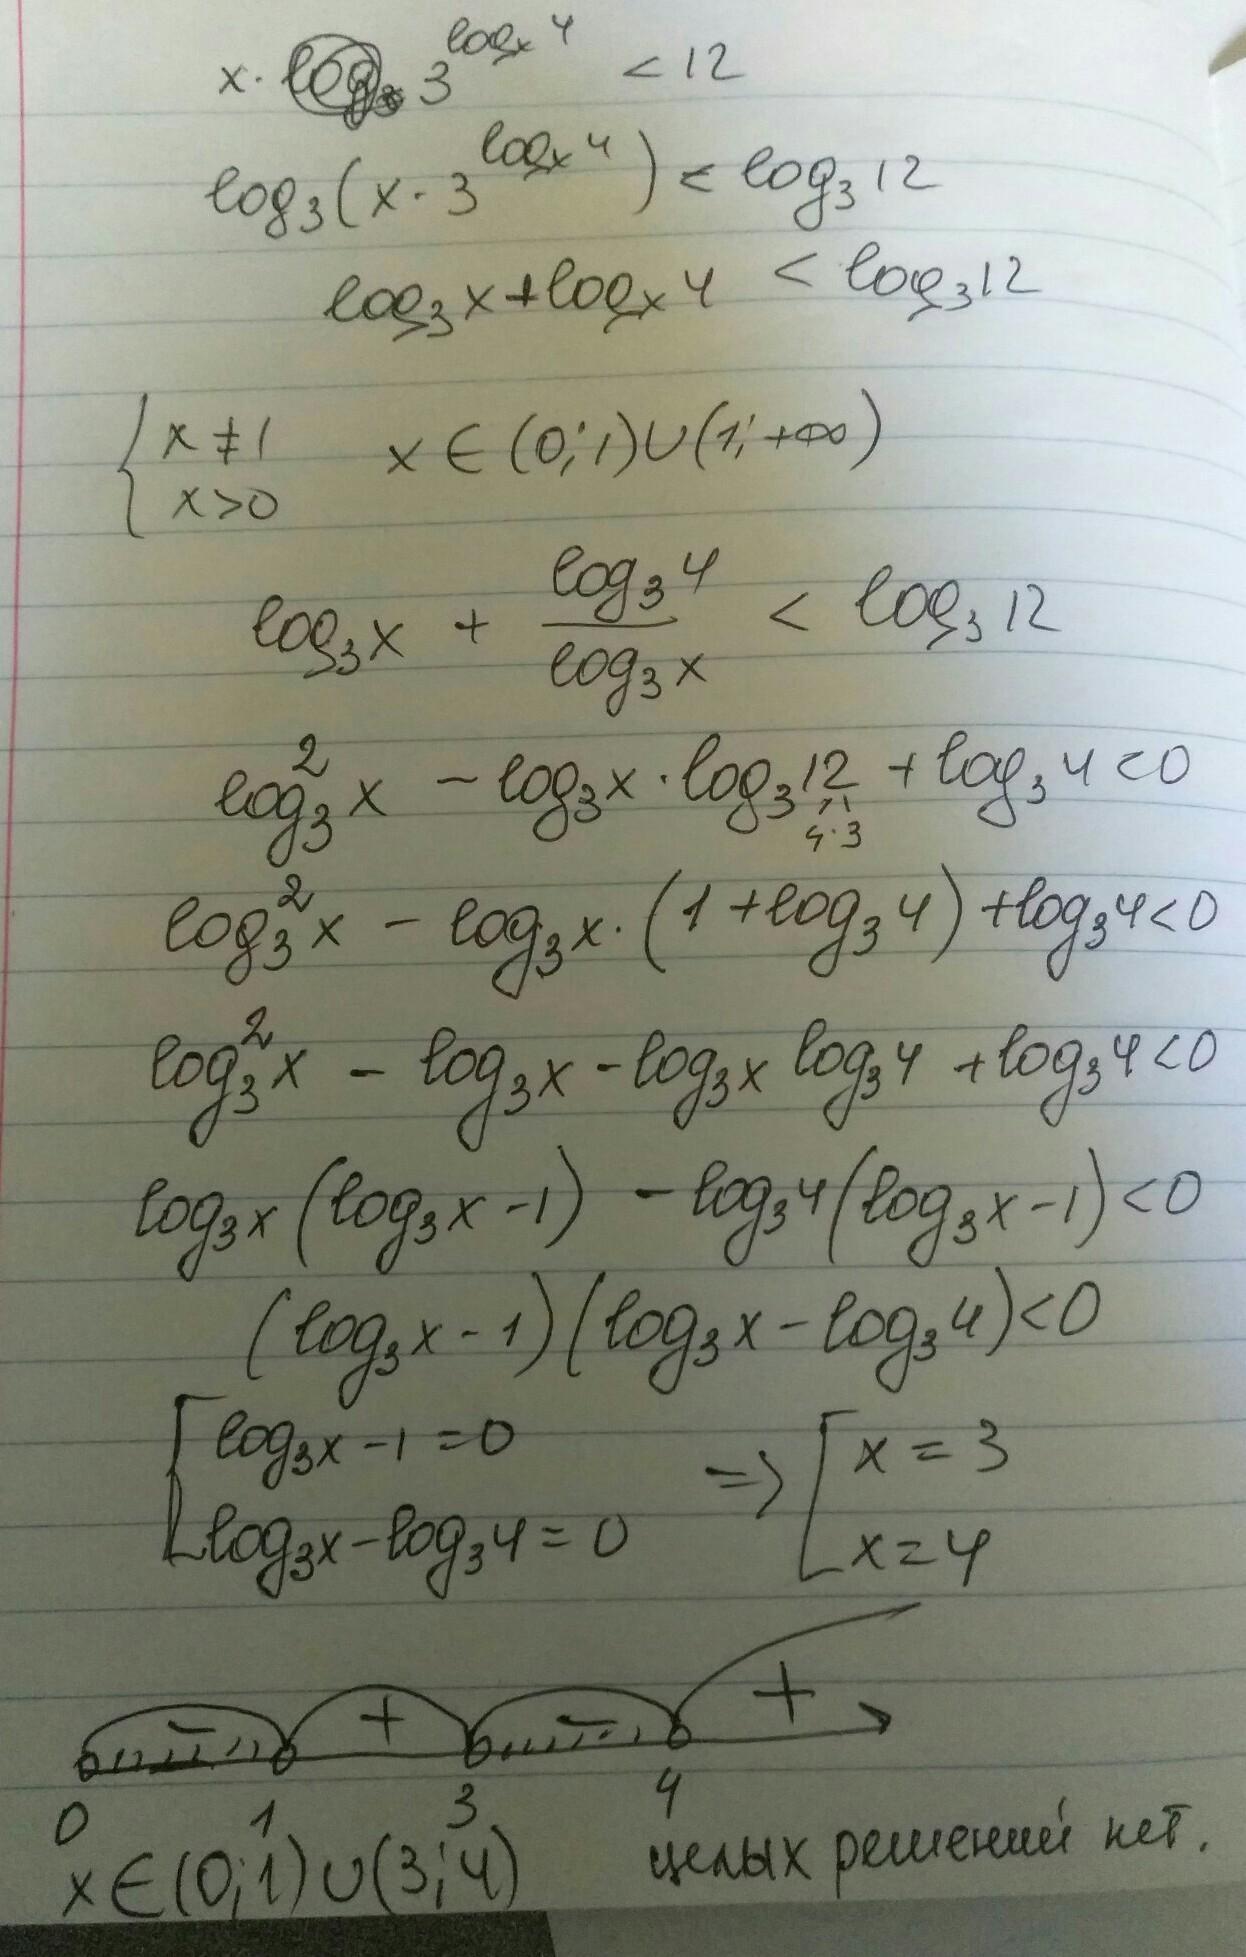 x · 3^{log_x 4} < 12
log₃(x · 3^{log_x 4}) < log₃12
log₃x + log_x 4 < log₃12
{ x ≠ 1   x ∈ (0; 1) ∪ (1; +∞)
x > 0
log₃x + log₃4 / log₃x < log₃12
log₃²x − log₃x · log₃12 + log₃4 < 0
4·3
log₃²x − log₃x · (1 + log₃4) + log₃4 < 0
log₃²x − log₃x − log₃x log₃4 + log₃4 < 0
log₃x (log₃x − 1) − log₃4 (log₃x − 1) < 0
(log₃x − 1)(log₃x − log₃4) < 0
[ log₃x − 1 = 0   => [ x = 3
log₃x − log₃4 = 0   x = 4
− + − +
0 1 3 4
x ∈ (0; 1) ∪ (3; 4)   целых решений нет.